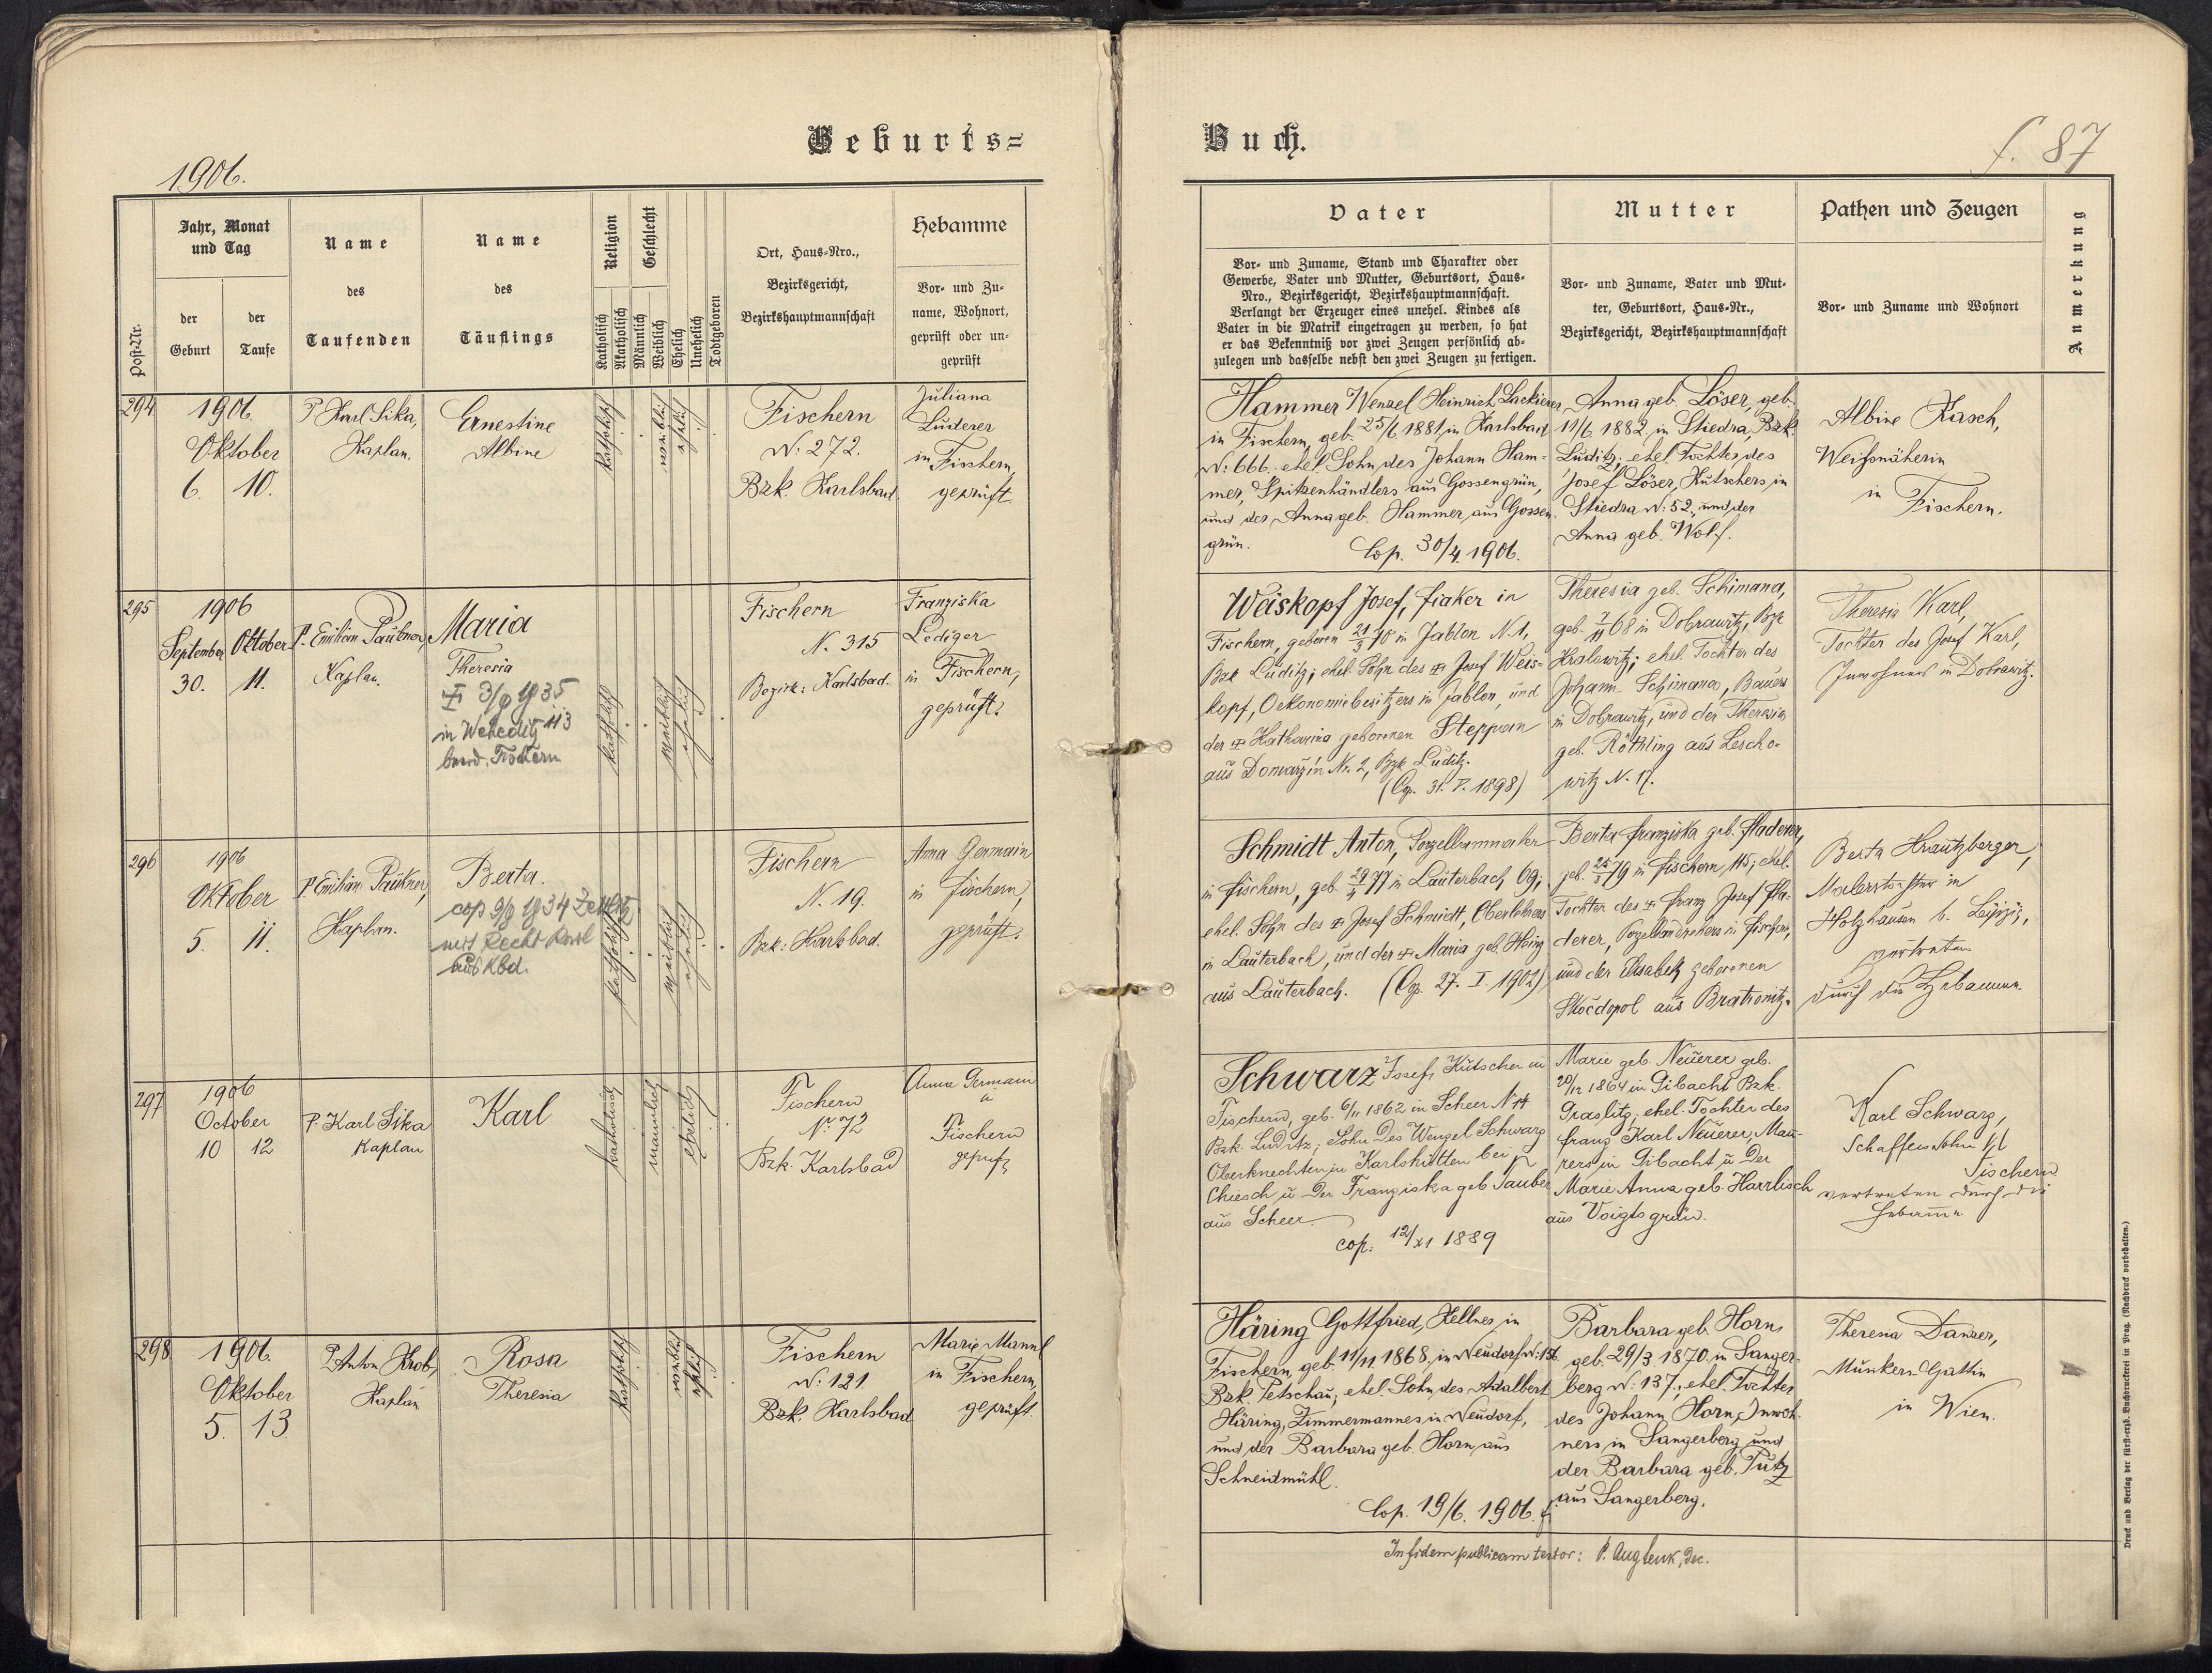 Geburts=
1906.
Post-Nr.
Jahr, Monat
und Tag
der
Geburt
der
Taufe
Name
des
Taufenden
Name
des
Täuflings
Religion
Katholisch
Akatholisch
Geschlecht
Männlich
Weiblich
Ehelich
Unehelich
Todtgeboren
Ort, Haus-Nro.,
Bezirksgericht,
Bezirkshauptmannschaft
Hebamme
Vor- und Zu-
name, Wohnort,
geprüft oder un-
geprüft
294
1906
Oktober
6. 10.
P. Karl Sika,
Kaplan.
Ernestine
Albine
katholisch
weiblich
ehelich
Fischern
N: 272.
Bzk. Karlsbad.
Juliana
Luderer
in Fischern,
geprüft.
295
1906
September Oktober
30. 11.
P. Emilian Paukner,
Kaplan.
Maria
Theresia
3/9 1935
in Weheditz 113
beerd. Fischern
katholisch
weiblich
ehelich
Fischern
N. 315
Bezirk: Karlsbad.
Franziska
Lediger
in Fischern,
geprüft.
296
1906
Oktober
5. 11.
P. Emilian Paukner,
Kaplan.
Berta.
cop 9/9 1934 Zettlitz
mit Recht Karl
aus Kbd.
katholisch
weiblich
ehelich
Fischern
N. 19.
Bzk: Karlsbad.
Anna Germain
in Fischern,
geprüft.
297
1906
October
10 12
P. Karl Sika
Kaplan
Karl
katholisch
männlich
ehelich
Fischern
No. 72
Bzk. Karlsbad
Anna Germain
in
Fischern
geprüft
298
1906
Oktober
5. 13.
P. Anton Krob,
Kaplan
Rosa
Theresia
katholisch
weiblich
ehelich
Fischern
N: 121.
Bzk. Karlsbad
Marie Mannl
in Fischern,
geprüft.
Buch.
f. 87
Vater
Vor- und Zuname, Stand und Charakter oder
Gewerbe, Vater und Mutter, Geburtsort, Haus-
Nro., Bezirksgericht, Bezirkshauptmannschaft.
Verlangt der Erzeuger eines unehel. Kindes als
Vater in die Matrik eingetragen zu werden, so hat
er das Bekenntniß vor zwei Zeugen persönlich ab-
zulegen und dasselbe nebst den zwei Zeugen zu fertigen.
Mutter
Vor- und Zuname, Vater und Mut-
ter, Geburtsort, Haus-Nr.,
Bezirksgericht, Bezirkshauptmannschaft
Pathen und Zeugen
Vor- und Zuname und Wohnort
Anmerkung
Hammer Wenzel Heinrich Lackierer
in Fischern, geb. 25/6 1881, in Karlsbad
N: 666. ehel. Sohn des Johann Ham-
mer, Spitzenhändlers aus Gossengrün,
und der Anna geb. Hammer, aus Gossen-
grün.
Cop. 30/4. 1906.
Anna geb. Löser, geb.
11/6. 1882 in Stiedra, Bzk.
Luditz; ehel. Tochter des
Josef Löser, Kutschers in
Stiedra N: 52, und der
Anna geb. Wolf.
Albine Kasch,
Weißnäherin
in Fischern.
Weiskopf Josef, Fiaker in
Fischern, geboren 21/3 70 in Jablon N. 1,
Bzk Luditz; ehel. Sohn des Josef Weis-
kopf, Oekonomiebesitzers in Jablon, und
der Katharina geborenen Steppan
aus Domaržin Nr. 2, Bzk Luditz.
(Cop. 31. V. 1898)
Theresia geb. Schimana,
geb. 7/11 68 in Dobrawitz, Bzk
Kralowitz; ehel. Tochter des
Johann Schimana, Bauers
in Dobrawitz, und der Theresia
geb. Röthling aus Lescho-
witz N. 17.
Theresia Karl,
Tochter des Josef Karl,
Inwohners in Dobrawitz.
Schmidt Anton, Porzellanmaler
in Fischern, geb. 29/4 77 in Lauterbach 69;
ehel. Sohn des Josef Schmidt, Oberlehrers
in Lauterbach, und der Maria geb.
aus Lauterbach. (Cop. 27. I. 1902)
Berta Franziska geb. Fladerer,
geb. 25/3 79 in Fischern 115; ehel.
Tochter des Franz Josef Fla-
derer, Porzellandrehers in Fischern,
und der Elisabeth geborenen
Skočdopol aus Bratronitz.
Berta Krautzberger,
Malerstochter in
Holzhausen b. Leipzig,
vertreten
durch die Hebamme.
Schwarz Josef, Kutscher in
Fischern, geb. 6/11 1862 in Scheer No 14
Bzk. Luditz; Sohn des Wenzel Schwarz
Oberknechten in Karlshütten bei
Chiesch u der Franziska geb Tauber
aus Scheer.
cop. 12/XI 1889
Marie geb. Neuerer geb.
20/12 1864 in Gibacht Bzk.
Graslitz; ehel. Tochter des
Franz Karl Neuerer, Mau-
rers in Gibacht u der
Marie Anna geb. Harrlisch
aus Voigtsgrün.
Karl Schwarz,
Fischern
vertreten durch die
Hebamme
Häring Gottfried, Kellner in
Fischern, geb. 11/11 1868, in Neudorf N: 156.
Bzk. Petschau; ehel. Sohn des Adalbert
Häring, Zimmermannes in Neudorf,
und der Barbara geb. Horn aus
Schneidmühl.
Cop. 19/6. 1906.
Barbara geb. Horn,
geb. 29/3 1870. in Sanger-
berg N: 137.; ehel. Tochter
des Johann Horn, Inwoh-
ners in Sangerberg und
der Barbara geb. Putz
aus Sangerberg.
Theresia Danzer,
Musikers Gattin
in Wien.
In fidem publicam testor: P. Aug Lenk, Dec.
Druck und Verlag der fürst-erzb. Buchdruckerei in Prag. (Nachdruck vorbehalten.)